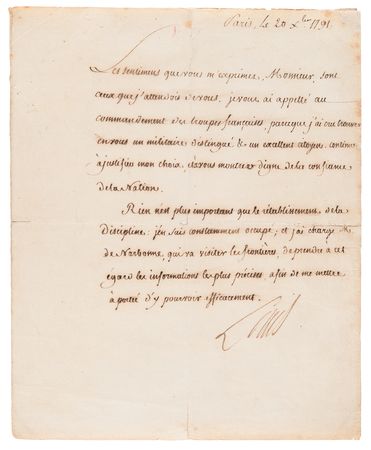 Paris, le 20 Xbre 1791.
Les sentimens que vous m'exprimés, Monsieur, sont
ceux que j'attendois de vous, je vous ai appellé au
commandement des troupes françaises, parceque j'ai cru trouver
en vous un militaire distingué & un excellent citoyen. continués
à justifier mon choix, à vous montrer digne de la confiance
de la Nation.
Rien n'est plus important que le rétablissement de la
discipline: j'en suis constamment occupé; et j'ai chargé M.
de Narbonne, qui va visiter les frontières, de prendre à cet
égard les informations les plus précises afin de me mettre
à portée d'y pourvoir efficacement.
Louis